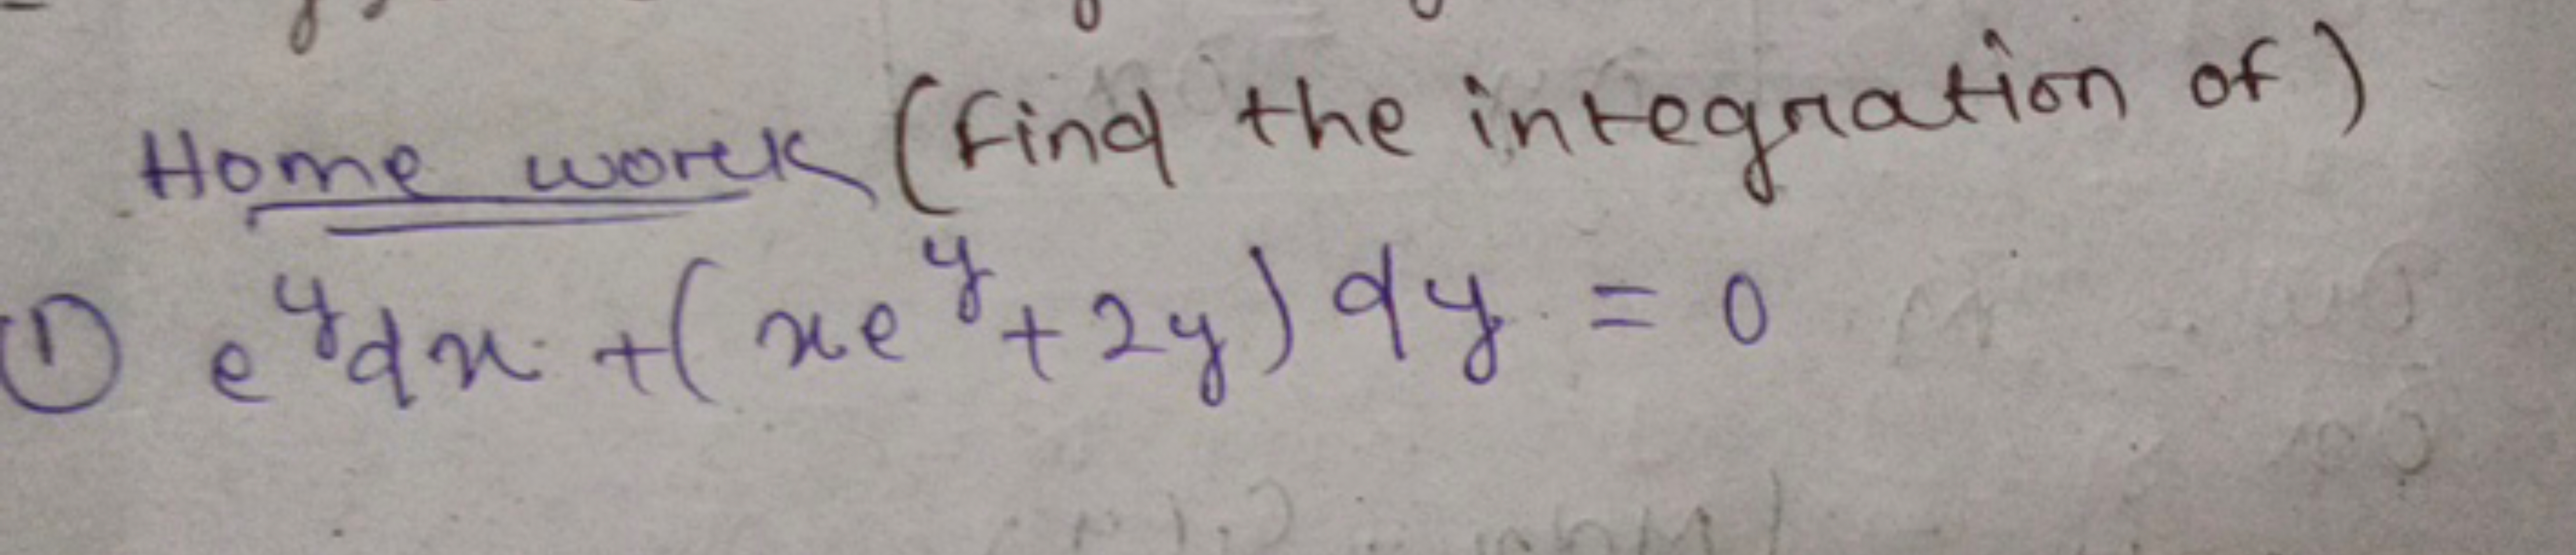 Home work (Find the integration of)
① e^y dx + (xe^y + 2y) dy = 0